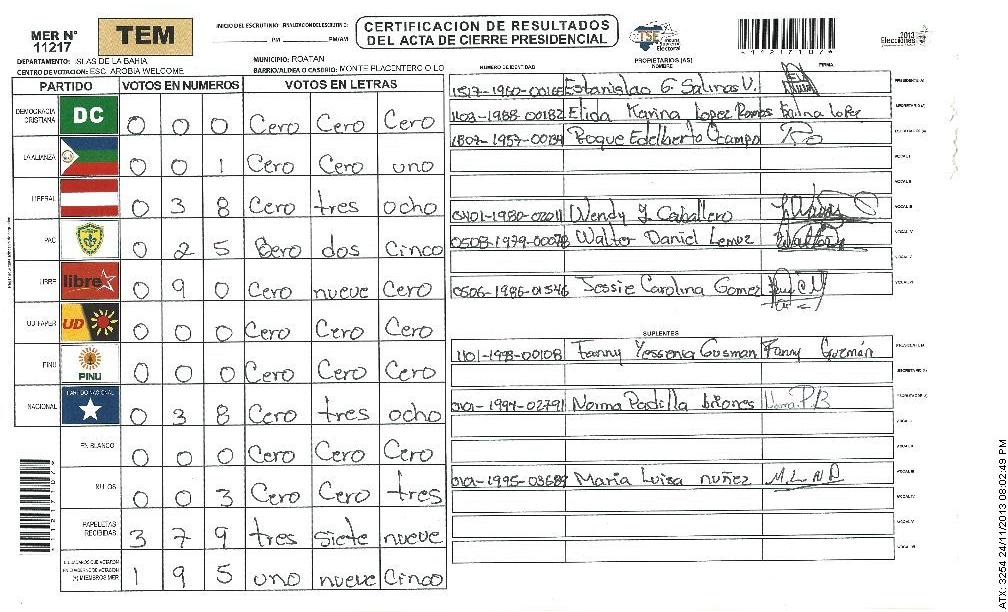 MER N° 11217
TEM
INICIO DEL ESCRUTINIO: FINALIZACION DEL ESCRUTINIO:
PM PM/AM
CERTIFICACION DE RESULTADOS
DEL ACTA DE CIERRE PRESIDENCIAL
TSE Tribunal Supremo Electoral
11217102
2013 Elecciones
DEPARTAMENTO: ISLAS DE LA BAHIA
MUNICIPIO: ROATAN
CENTRO DE VOTACION: ESC. AROBIA WELCOME
BARRIO/ALDEA O CASERIO: MONTE PLACENTERO O LO
PARTIDO VOTOS EN NUMEROS VOTOS EN LETRAS
DEMOCRACIA CRISTIANA DC 0 0 0 Cero Cero Cero
LA ALIANZA 0 0 1 Cero Cero uno
LIBERAL 0 3 8 Cero tres ocho
PAC 0 2 5 Cero dos Cinco
LIBRE libre 0 9 0 Cero nueve Cero
UD-FAPER UD 0 0 0 Cero Cero Cero
PINU PINU 0 0 0 Cero Cero Cero
NACIONAL PARTIDO NACIONAL 0 3 8 Cero tres ocho
EN BLANCO 0 0 0 Cero Cero Cero
NULOS 0 0 3 Cero Cero tres
PAPELETAS RECIBIDAS 3 7 9 tres siete nueve
CIUDADANOS QUE VOTARON EN CUADERNO DE VOTACION (+) MIEMBROS MER 1 9 5 uno nueve Cinco
PROPIETARIOS (AS)
NUMERO DE IDENTIDAD NOMBRE FIRMA
Estanislao G Salinas V. PRESIDENTE (A)
1103-1988-00182 Elida Karina Lopez Ramos Karina Lopez SECRETARIO (A)
Roque Edelberto Ocampo ESCRUTADOR (A)
VOCAL I
VOCAL II
0401-1980-02011 Wendy Y Caballero VOCAL III
Walter Daniel Lemuz VOCAL IV
VOCAL V
0506-1986-01546 Jessie Carolina Gomez VOCAL VI
SUPLENTES
1101-1993-00108 Fanny Yessenia Gusman Fanny Guzmán PRESIDENTE (A)
SECRETARIO (A)
Norma Padilla briones Norma P.B ESCRUTADOR (A)
VOCAL I
VOCAL II
Maria Luisa nuñez M.L.N.P. VOCAL III
VOCAL IV
VOCAL V
VOCAL VI
ATX: 3254 24/11/2013 08:02:49 PM